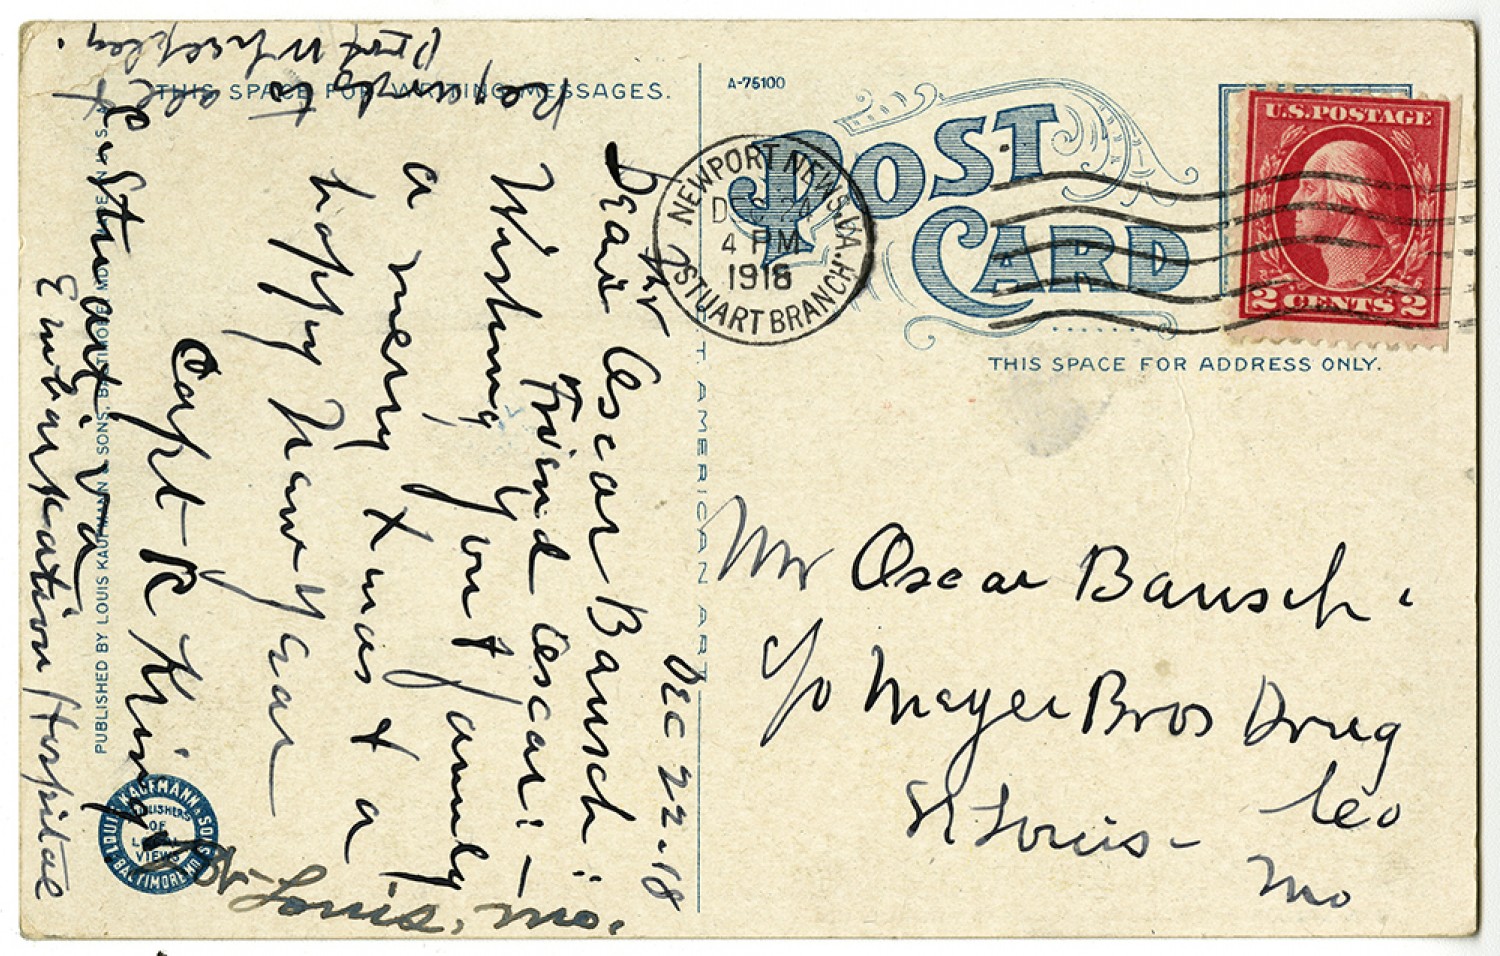 THIS SPACE FOR WRITING MESSAGES.
Dec 22-18
Mr
Dear Oscar Bausch:
"Friend Oscar:-
Wishing you & family
a merry Xmas & a
happy New Year
Regards to
all &
Prof Whelpley.
Capt R King
St. Louis, Mo.
C. Stuart Va
Embarkation Hospital
PUBLISHED BY LOUIS KAUFMANN & SONS, BALTIMORE, MD.
LOUIS KAUFMANN & SONS
PUBLISHERS
OF
LOCAL
VIEWS
BALTIMORE MD.
A-75100
POST
CARD
NEWPORT NEWS, VA.
4 PM
1918
STUART BRANCH
U.S. POSTAGE
2 CENTS 2
THIS SPACE FOR ADDRESS ONLY.
T. AMERICAN ART
Mr Oscar Bausch.
c/o Meyer Bros Drug
Co
St Louis-
Mo